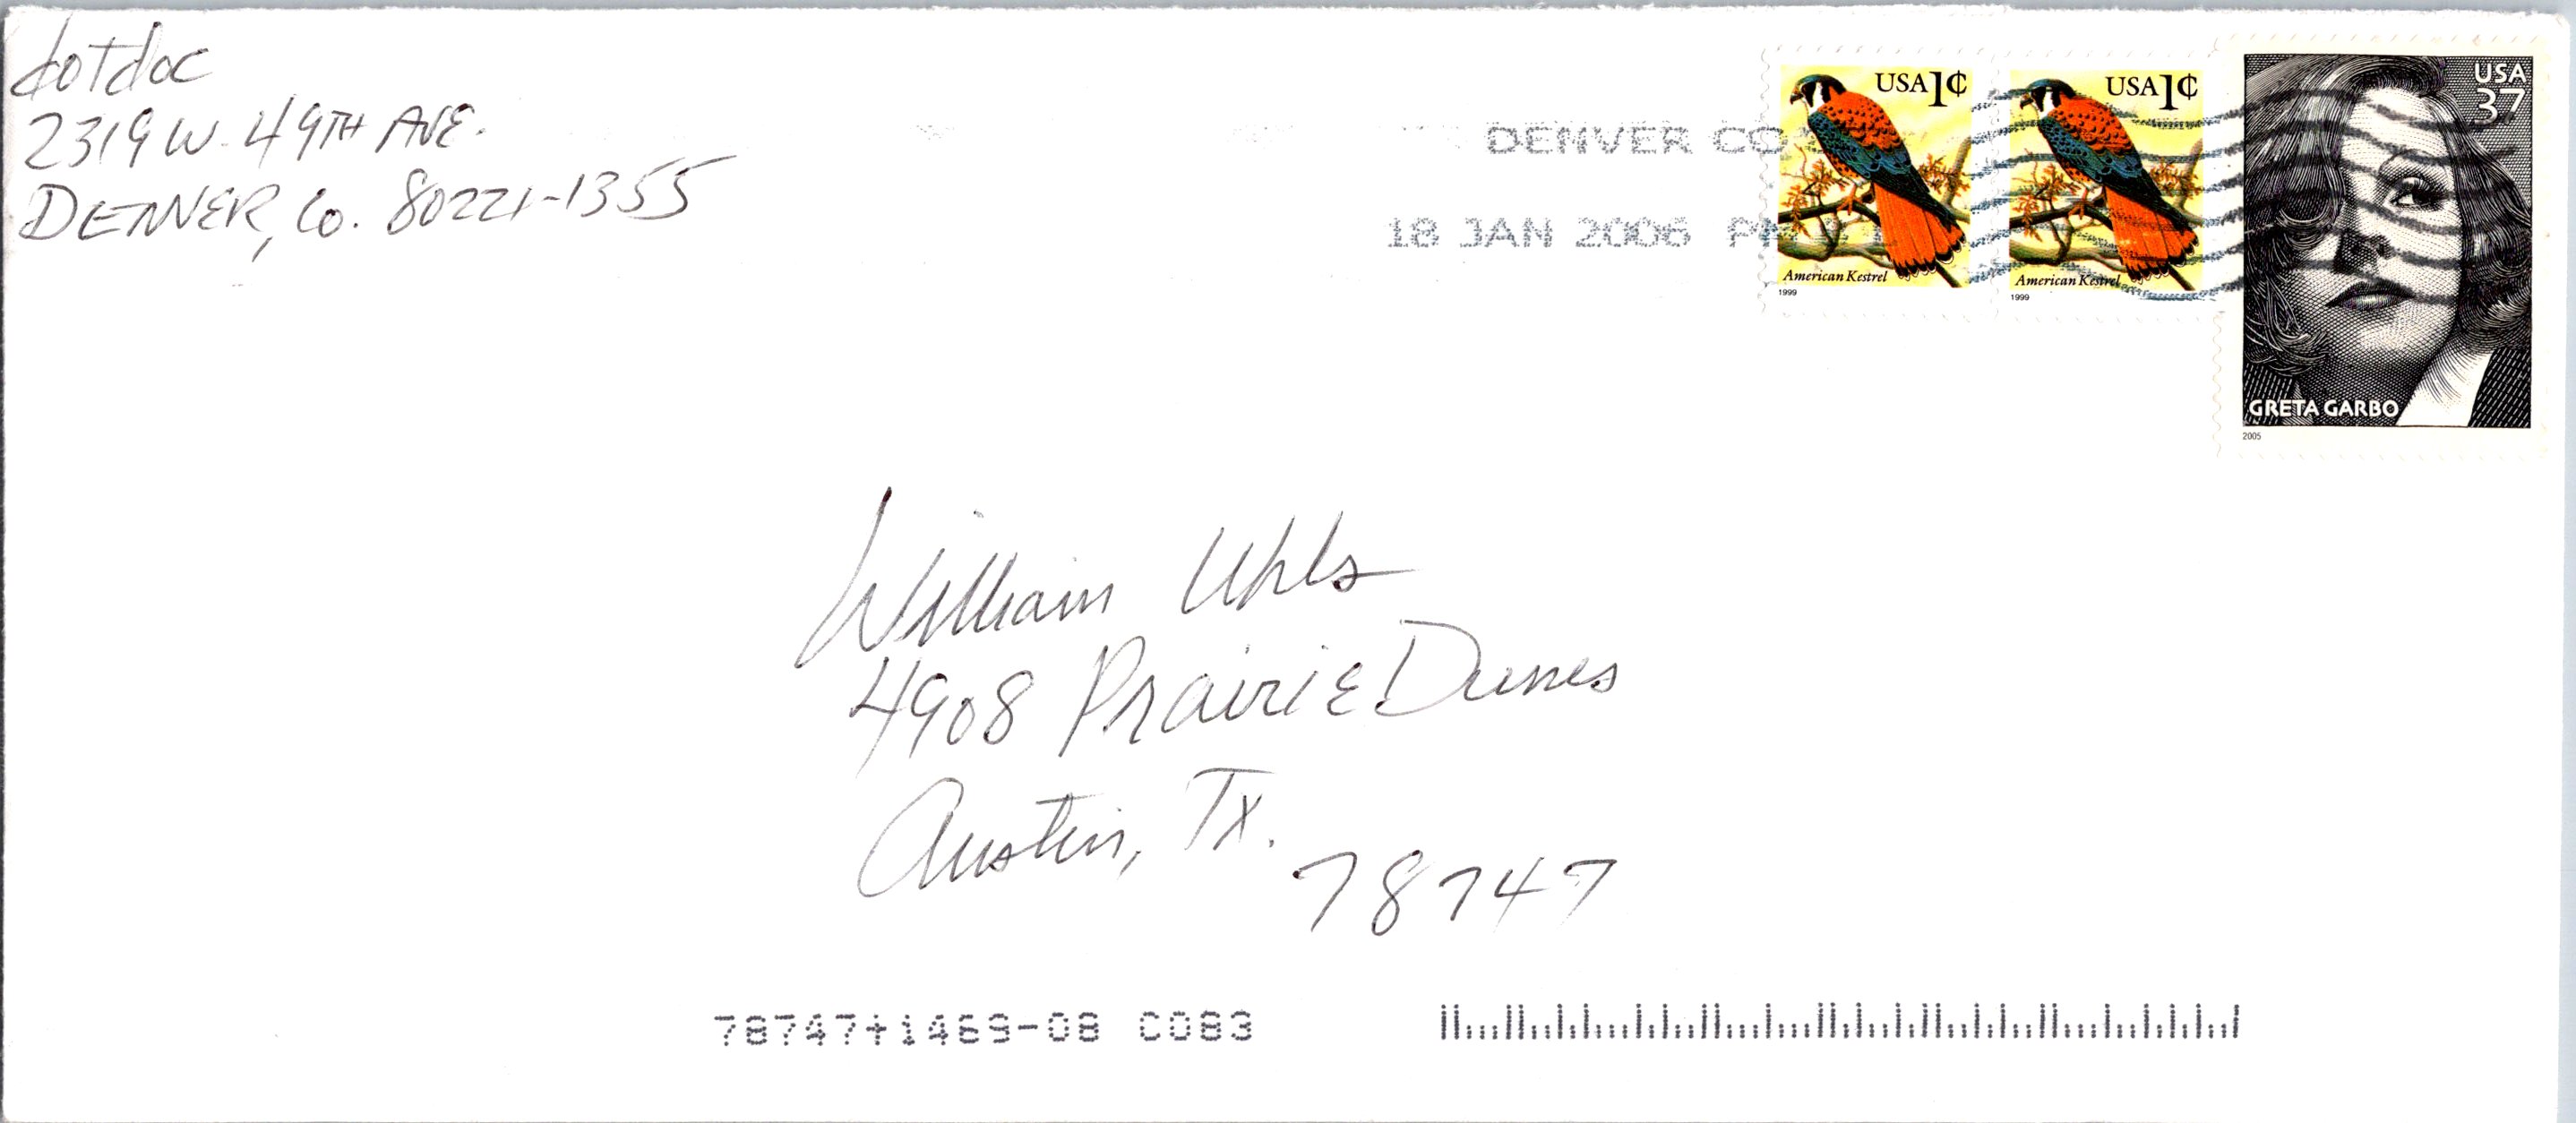 dotdoc
2319 W. 49TH AVE.
DENVER, CO. 80221-1355
DENVER CO
18 JAN 2006 PM
USA 1¢
American Kestrel
1999
USA 1¢
American Kestrel
1999
USA
37
GRETA GARBO
2005
William Uhls
4908 Prairie Dunes
Austin, Tx.
78747
78747+1469-08 C083